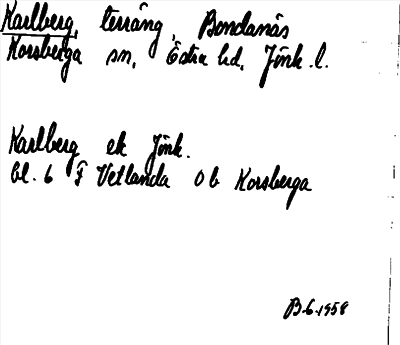 Karlberg, terräng, Bondanäs
Korsberga sn, Östra hd, Jönk. l.
Karlberg ek Jönk.
bl. 6 F Vetlanda Ob Korsberga
B.6.1958